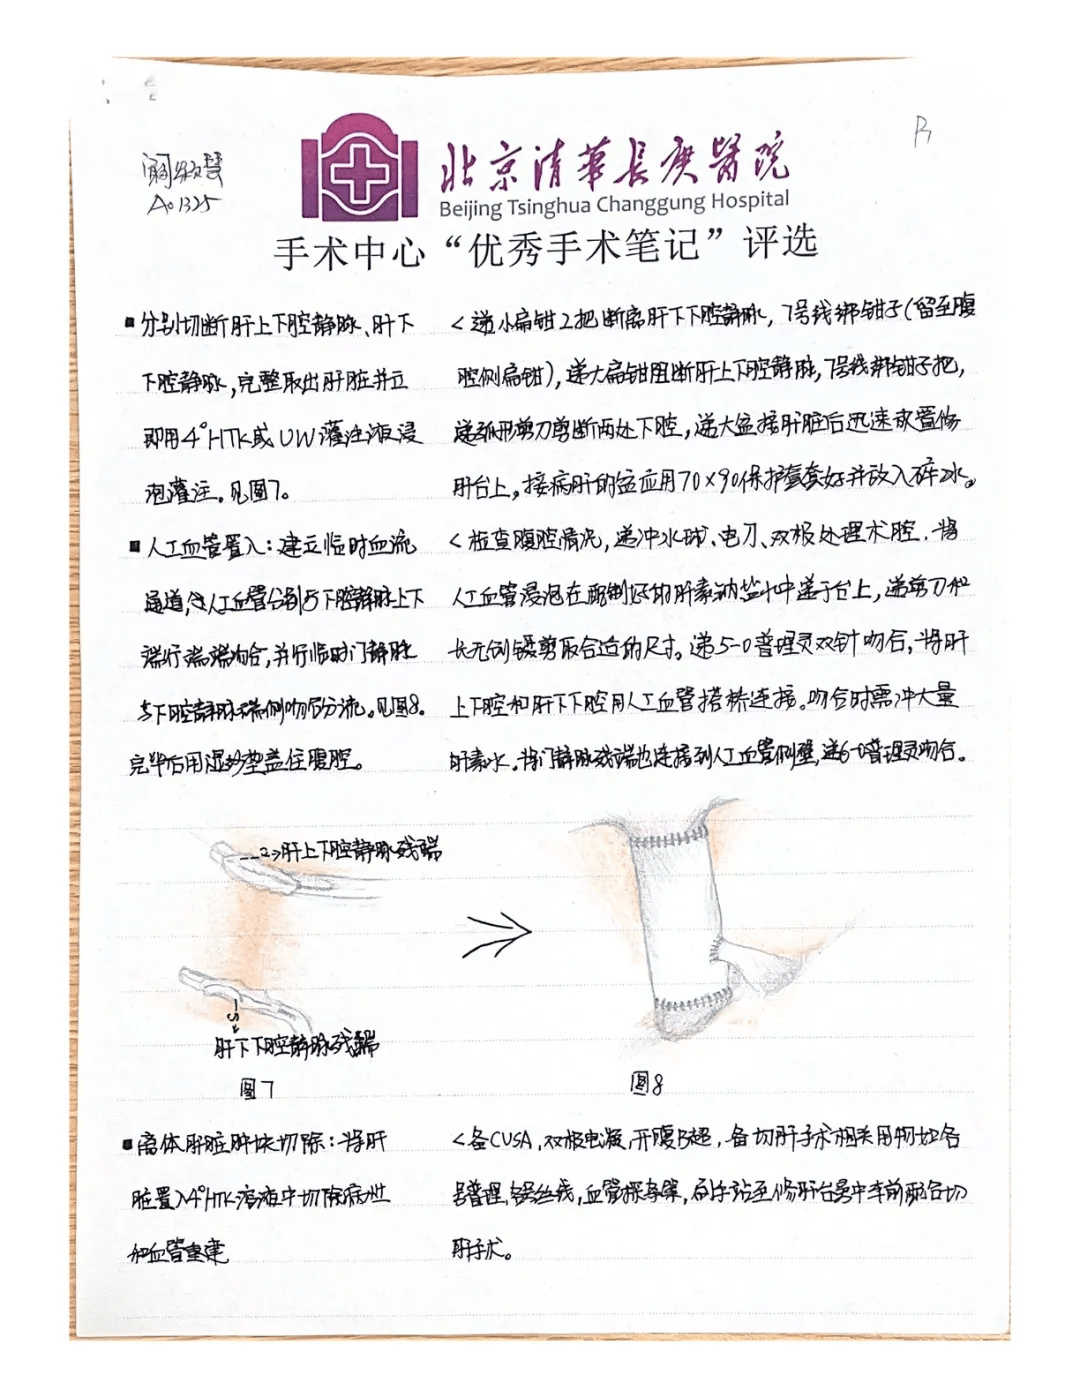 P₁
敏慧
A01325
北京清華長庚醫院
Beijing Tsinghua Changgung Hospital
手术中心“优秀手术笔记”评选
■分别切断肝上下腔静脉、肝下
下腔静脉,完整取出肝脏并立
即用4°HTK或UW灌注液浸
泡灌注。见图7。
<递小扁钳2把断离肝下下腔静脉,7号线绑钳子(留至腹
腔侧扁钳),递大扁钳阻断肝上下腔静脉,7号线绑钳子把,
递弧形剪刀剪断两处下腔,递大盆接肝脏后迅速放置修
肝台上,接病肝的盆应用70×90保护套套好并放入碎冰。
■人工血管置入:建立临时血流
通道,人工血管分别与下腔静脉上下
端行端端吻合,并行临时门静脉
与下腔静脉端侧吻合分流。见图8。
完毕后用湿纱垫盖住腹腔。
<检查腹腔情况,递冲水球、电刀、双极处理术腔.将
人工血管浸泡在配制好的肝素钠盐水中递于台上,递剪刀和
长无创镊剪取合适的尺寸。递5-0普理灵双针吻合,将肝
上下腔和肝下下腔用人工血管搭桥连接。吻合时需冲大量
肝素水.将门静脉残端也连接到人工血管侧壁,递6-0普理灵吻合。
肝上下腔静脉残端
肝下下腔静脉残端
图7
图8
■离体肝脏肿块切除:将肝
脏置入4°HTK溶液中切除病灶
和血管重建
<备CUSA,双极电凝,开腹B超,备切肝手术相关用物如各
号普理,钽丝线,血管探条等,刷手站至修肝台器中车前配合切
肝手术。